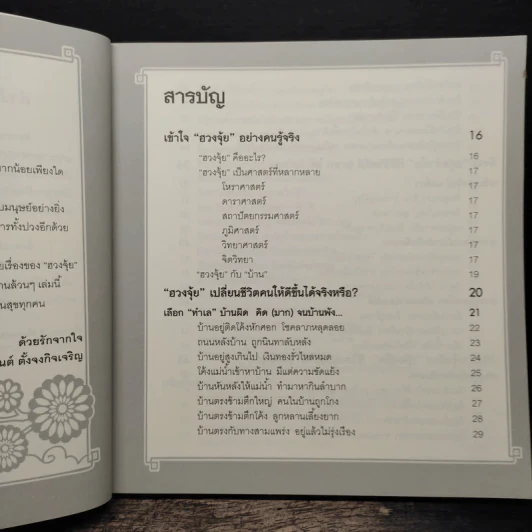 ากน้อยเพียงใด
บมนุษย์อย่างยิ่ง
การทั้งปวงอีกด้วย
ยเรื่องของ "ฮวงจุ้ย"
านล้วนๆ เล่มนี้
นสุขทุกคน
ด้วยรักจากใจ
นต์ ตั้งจงกิจเจริญ
สารบัญ
เข้าใจ "ฮวงจุ้ย" อย่างคนรู้จริง 16
"ฮวงจุ้ย" คืออะไร? 16
"ฮวงจุ้ย" เป็นศาสตร์ที่หลากหลาย 17
โหราศาสตร์ 17
ดาราศาสตร์ 17
สถาปัตยกรรมศาสตร์ 17
ภูมิศาสตร์ 17
วิทยาศาสตร์ 17
จิตวิทยา 17
"ฮวงจุ้ย" กับ "บ้าน" 19
"ฮวงจุ้ย" เปลี่ยนชีวิตคนให้ดีขึ้นได้จริงหรือ? 20
เลือก "ทำเล" บ้านผิด คิด (มาก) จนบ้านพัง... 21
บ้านอยู่ติดโค้งหักศอก โชคลาภหลุดลอย 22
ถนนหลังบ้าน ถูกนินทาลับหลัง 23
บ้านอยู่สูงเกินไป เงินทองรั่วไหลหมด 24
โค้งแม่น้ำเข้าหาบ้าน มีแต่ความขัดแย้ง 25
บ้านหันหลังให้แม่น้ำ ทำมาหากินลำบาก 26
บ้านตรงข้ามตึกใหญ่ คนในบ้านถูกโกง 27
บ้านตรงข้ามตึกโค้ง ลูกหลานเลี้ยงยาก 28
บ้านตรงกับทางสามแพร่ง อยู่แล้วไม่รุ่งเรือง 29